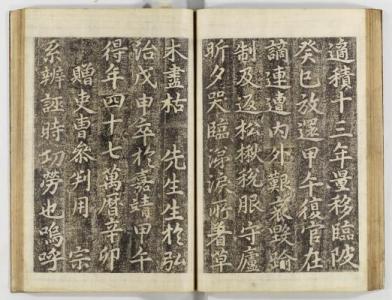 適積十三年量移臨陂
癸巳放還甲午復官在
謫連遭內外艱哀毀踰
制及返松楸稅服守廬
昕夕哭臨淚所着草
木盡枯 先生生於弘
治戊申卒於嘉靖甲午
得年四十七萬曆辛卯
贈吏曹參判用 宗
系辨誣時功勞也嗚呼